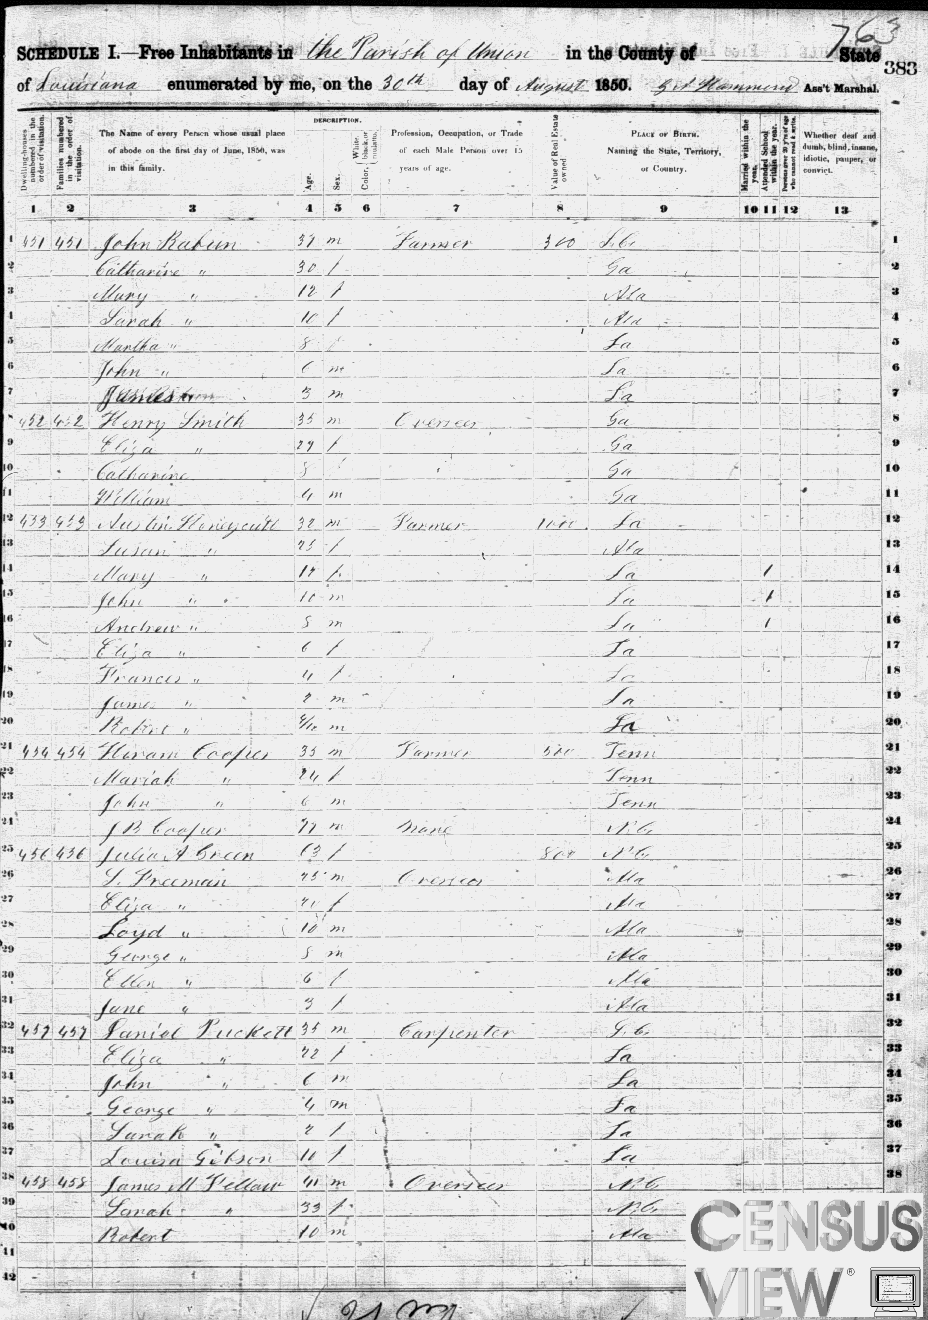 763
SCHEDULE I.—Free Inhabitants in the Parish of Union in the County of State 383
of Louisiana enumerated by me, on the 30th day of August 1850. Hammond Ass't Marshal.
Dwelling-houses numbered in the order of visitation.
Families numbered in the order of visitation.
The Name of every Person whose usual place of abode on the first day of June, 1850, was in this family.
DESCRIPTION.
Age.
Sex.
Color, White, black, or mulatto.
Profession, Occupation, or Trade of each Male Person over 15 years of age.
Value of Real Estate owned.
PLACE OF BIRTH. Naming the State, Territory, or Country.
Married within the year.
Attended School within the year.
Persons over 20 y'rs of age who cannot read & write.
Whether deaf and dumb, blind, insane, idiotic, pauper, or convict.
1 2 3 4 5 6 7 8 9 10 11 12 13
1 451 451 John Rabun 37 m Farmer 300 S.C. 1
2 Catharine " 30 f Ga 2
3 Mary " 12 f Ala 3
4 Sarah " 10 f Ala 4
5 Martha " 8 f La 5
6 John " 6 m La 6
7 James 3 m La 7
8 452 452 Henry Smith 35 m Overseer Ga 8
9 Eliza " 29 f Ga 9
10 Catharine 8 f Ga 10
11 William 4 m Ga 11
12 453 453 Austin Honeycutt 32 m Farmer 1000 La 12
13 Susan " 25 f Ala 13
14 Mary " 12 f La 1 14
15 John " 10 m La 1 15
16 Andrew " 8 m La 1 16
17 Eliza " 6 f La 17
18 Frances " 4 f La 18
19 James " 2 m La 19
20 Robert " /12 m La 20
21 454 454 Hiram Cooper 35 m Farmer 500 Tenn 21
22 Mariah " 24 f Tenn 22
23 John " 6 m Tenn 23
24 J B Cooper 77 m None N.C. 24
25 456 456 Julia A Green 63 f 800 N.C. 25
26 S. Freeman 25 m Overseer Ala 26
27 Eliza " 21 f Ala 27
28 Loyd " 10 m Ala 28
29 George " 8 m Ala 29
30 Ellen " 6 f Ala 30
31 Jane " 3 f Ala 31
32 457 457 Daniel Puckett 35 m Carpenter S.C. 32
33 Eliza " 22 f La 33
34 John " 6 m La 34
35 George " 4 m La 35
36 Sarah " 2 f La 36
37 Louisa Gibson 10 f La 37
38 458 458 James M Pellow 41 m Overseer N.C. 38
39 Sarah " 33 f N.C.
40 Robert 10 m Ala
41
42
CENSUS
VIEW®